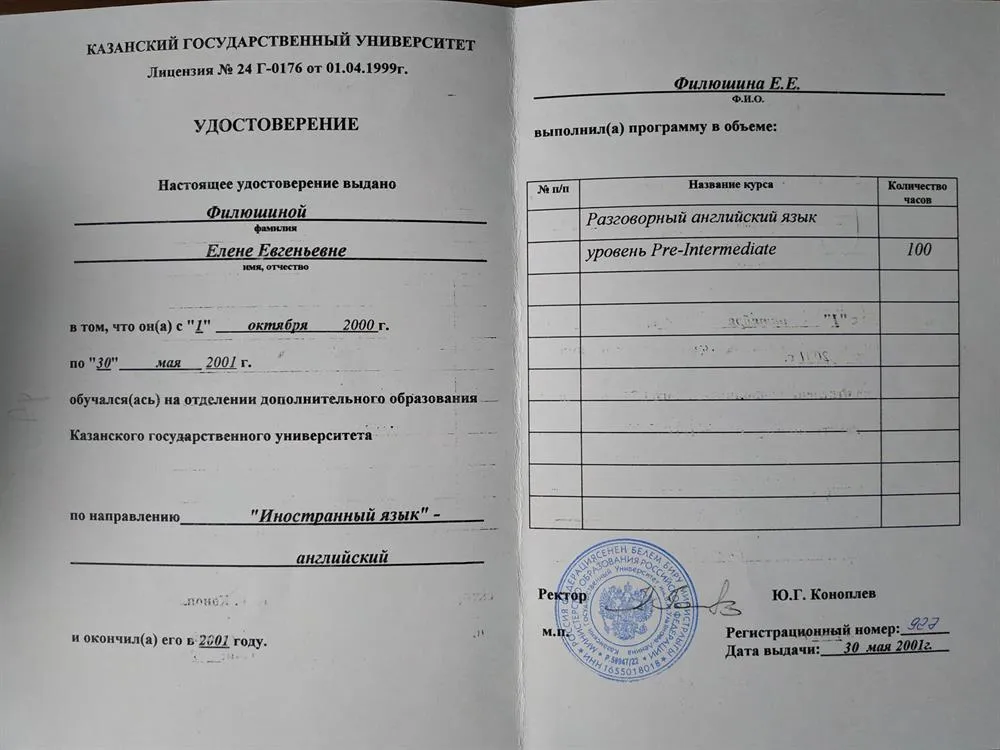 КАЗАНСКИЙ ГОСУДАРСТВЕННЫЙ УНИВЕРСИТЕТ
Лицензия № 24 Г-0176 от 01.04.1999г.
УДОСТОВЕРЕНИЕ
Настоящее удостоверение выдано
Филюшиной
фамилия
Елене Евгеньевне
имя, отчество
в том, что он(а) с "1" октября 2000 г.
по "30" мая 2001 г.
обучался(ась) на отделении дополнительного образования
Казанского государственного университета
по направлению "Иностранный язык" -
английский
и окончил(а) его в 2001 году.
Филюшина Е.Е.
Ф.И.О.
выполнил(а) программу в объеме:
№ п/п Название курса Количество часов
Разговорный английский язык
уровень Pre-Intermediate 100
Ректор Ю.Г. Коноплев
м.п.
Регистрационный номер: 927
Дата выдачи: 30 мая 2001г.
ИНН 1655018018